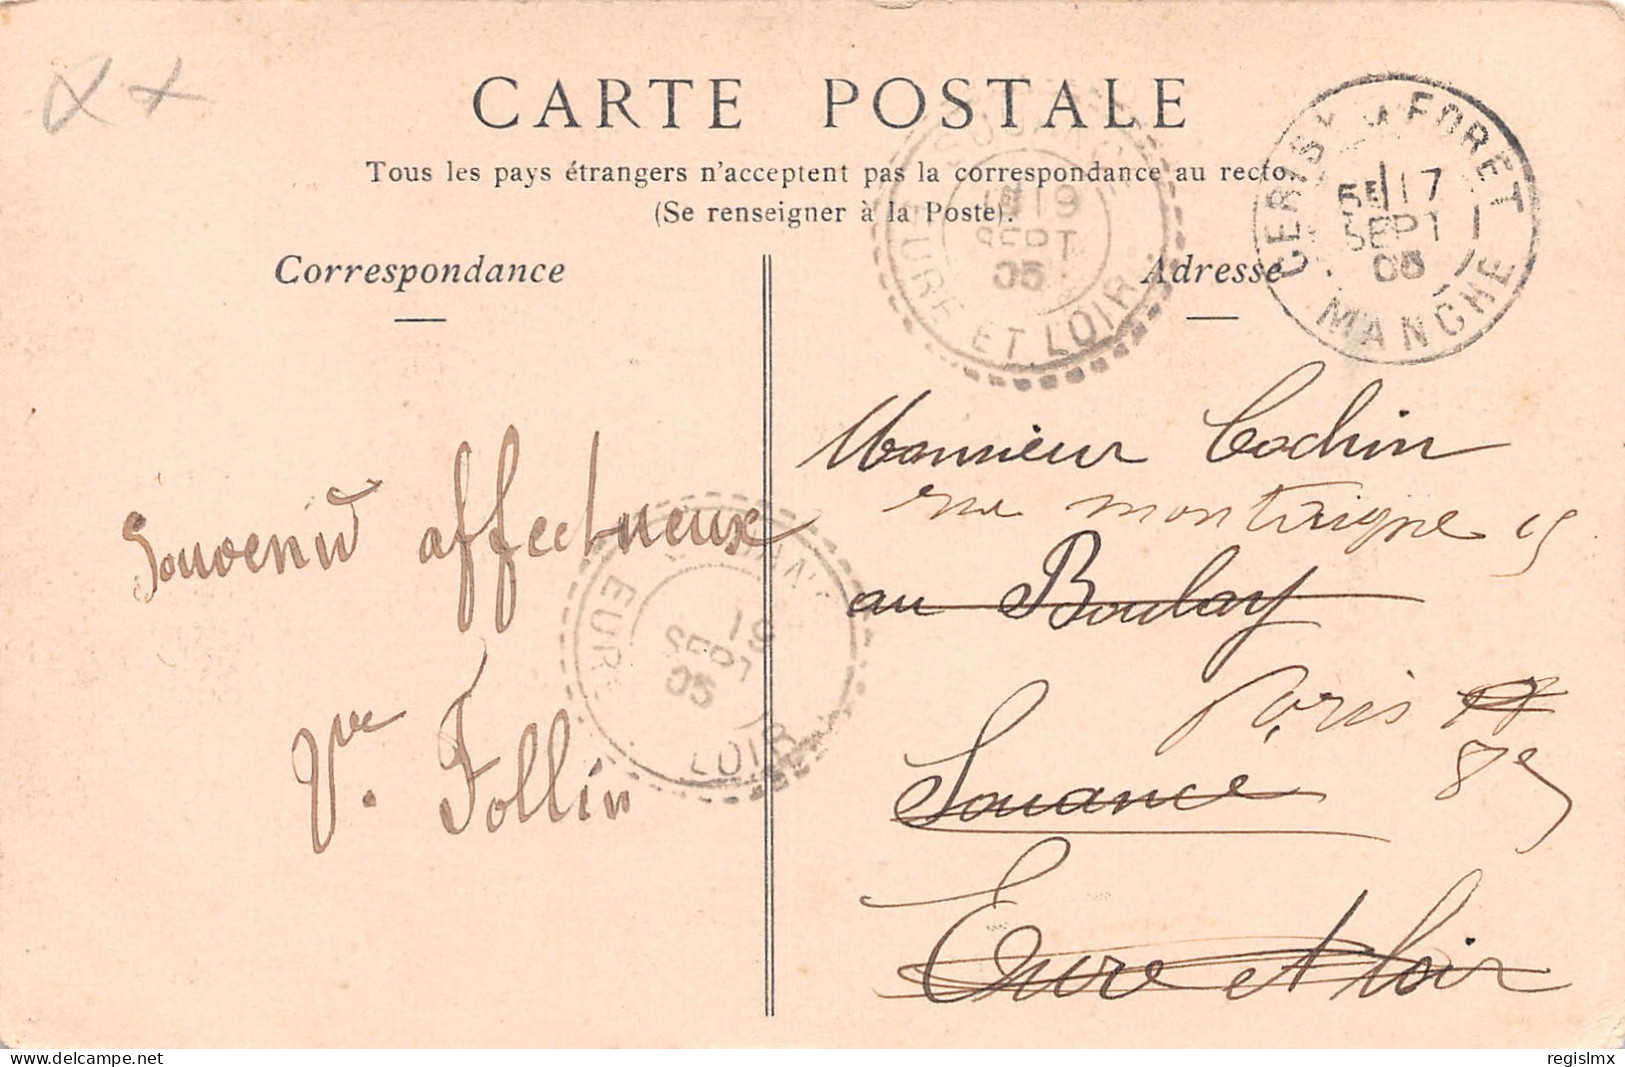 CARTE POSTALE
Tous les pays étrangers n'acceptent pas la correspondance au recto.
(Se renseigner à la Poste).
Correspondance
Adresse
CERISY FORET
5E 17
SEPT
05
MANCHE
19
SEPT
05
EURE ET LOIR
Souvenir affectueux
Vve. Follin
EURE
LOIR
SEPT
05
Monsieur Cochin
rue montaigne 15
au Boulay
Paris
8e
Souancé
Eure et Loir
www.delcampe.net
regislmx